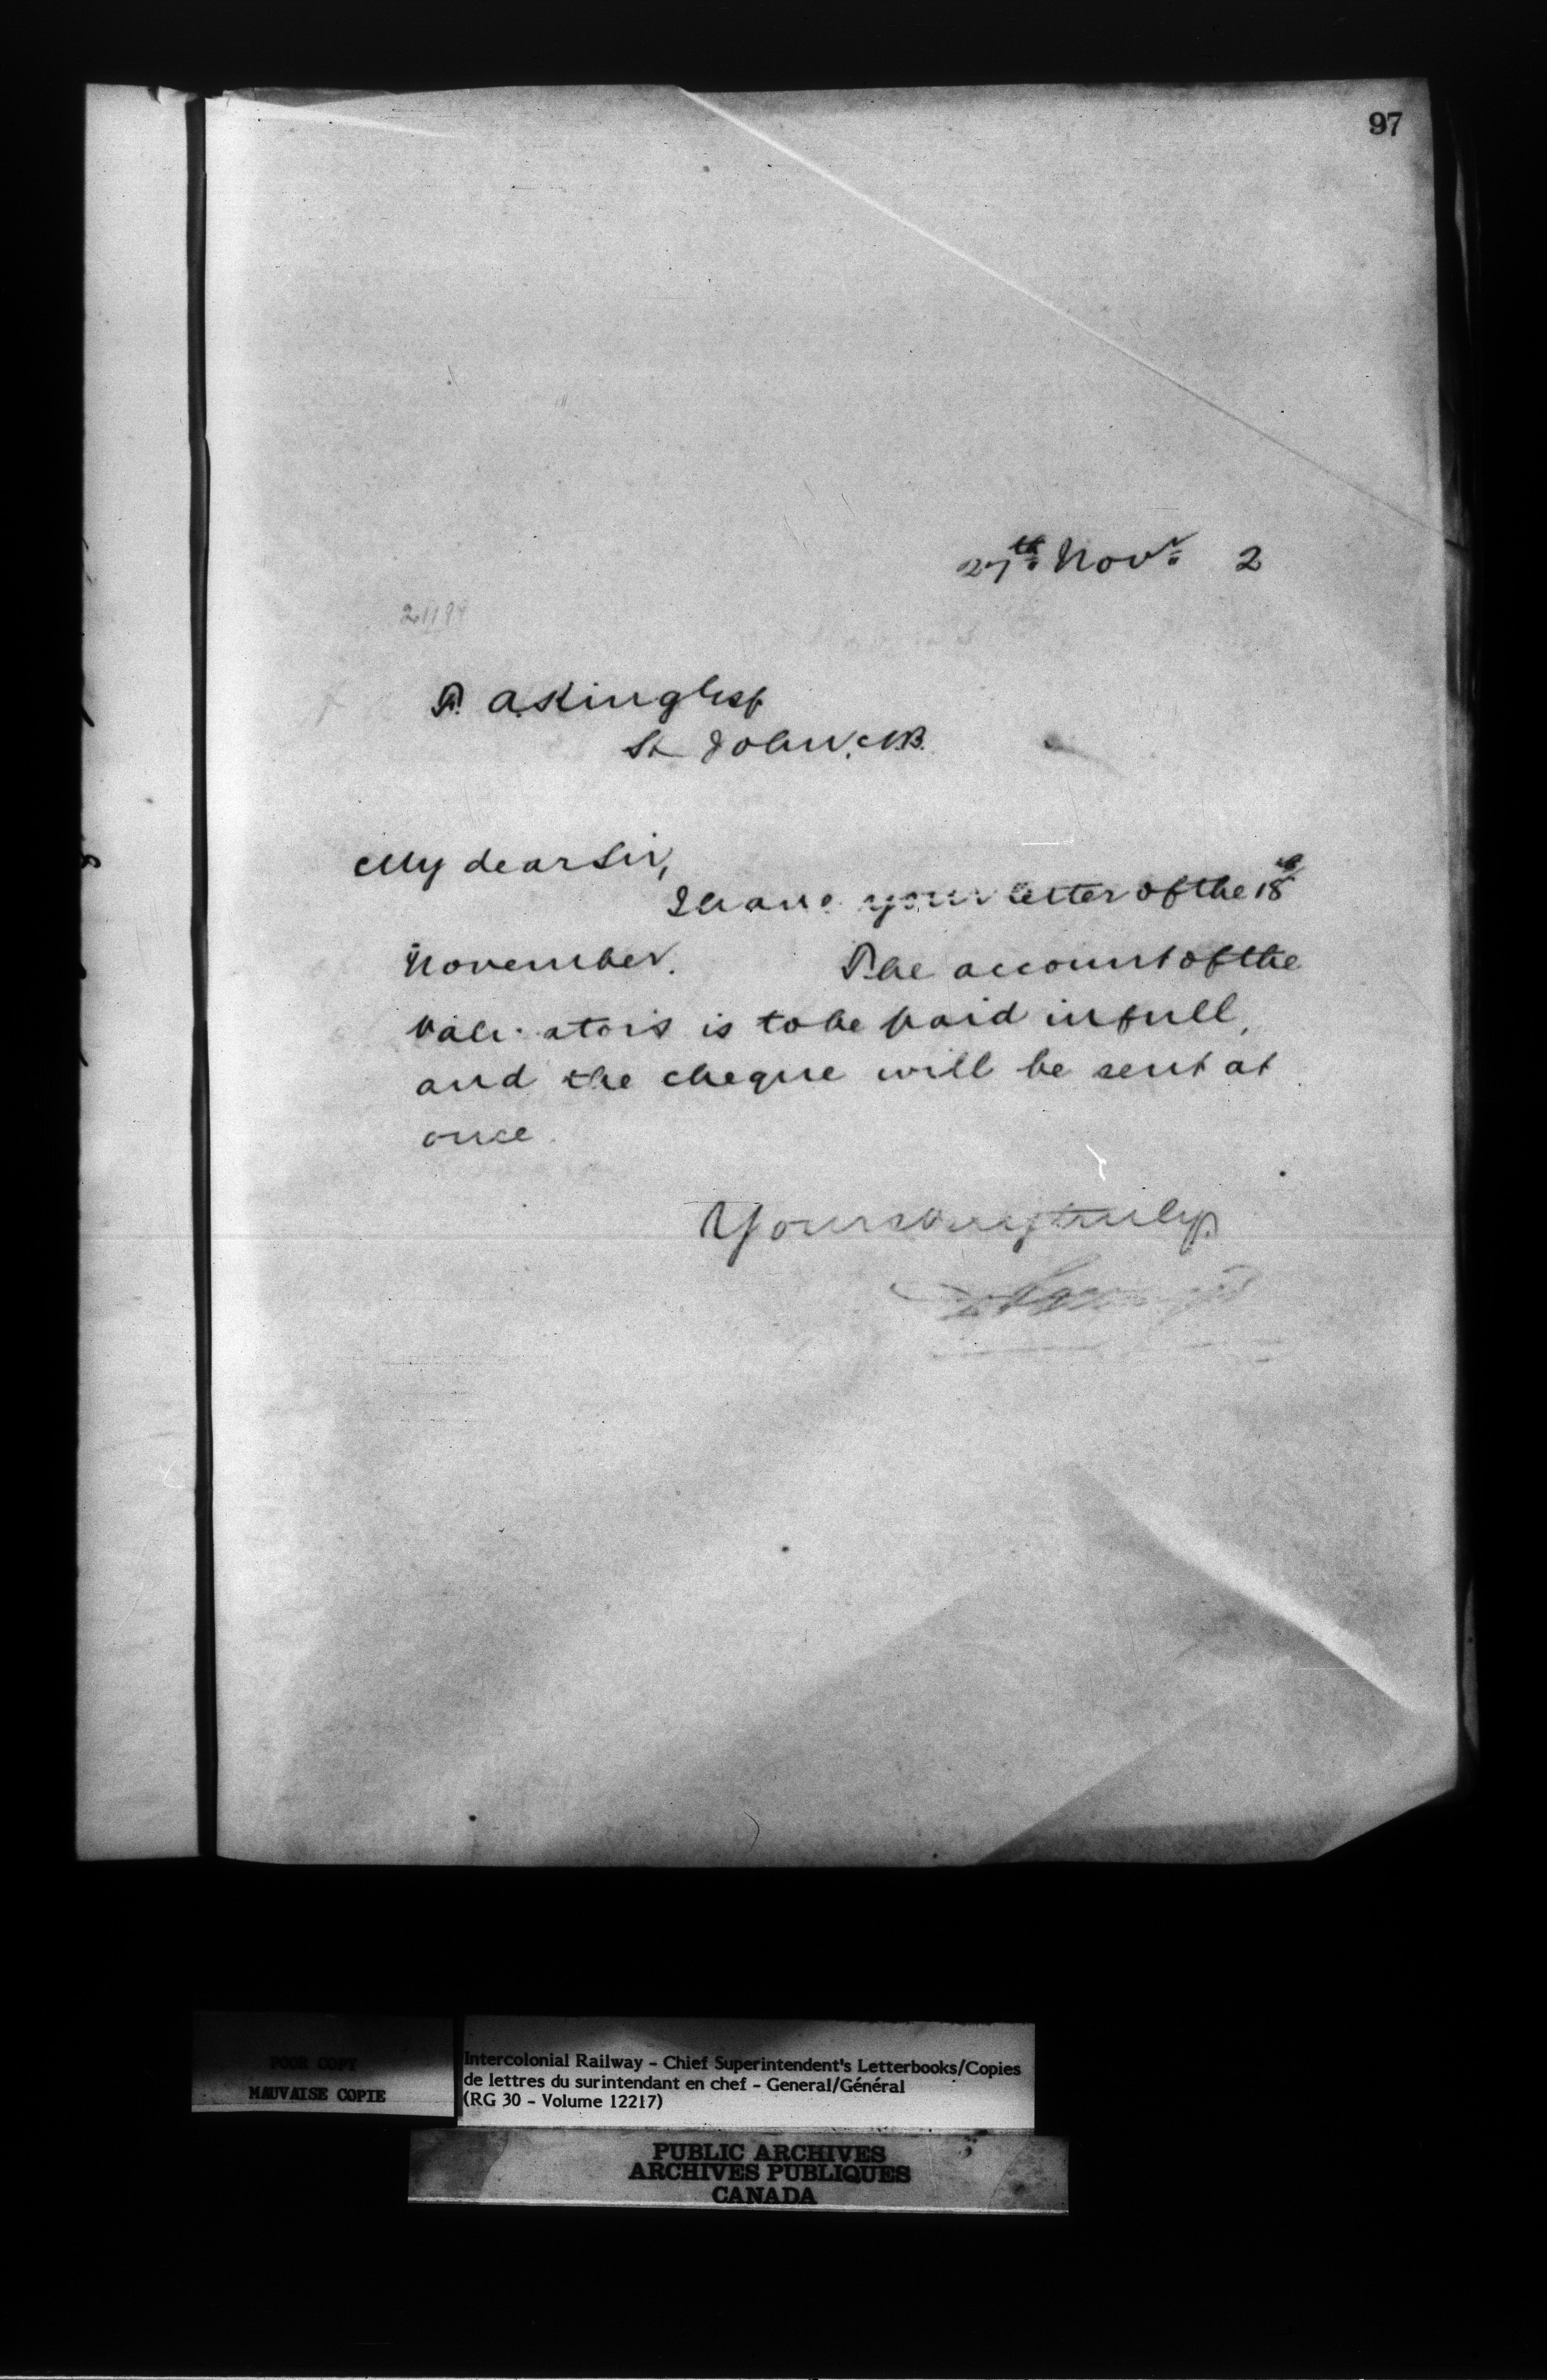 97
27th Novr 2
21199
A. A. King Esq
St John, N.B.
My dear Sir,
I have your letter of the 18th
November. The account of the
Valuators is to be paid in full,
and the cheque will be sent at
once.
Yours very truly,
POOR COPY
MAUVAISE COPIE
Intercolonial Railway - Chief Superintendent's Letterbooks/Copies
de lettres du surintendant en chef - General/Général
(RG 30 - Volume 12217)
PUBLIC ARCHIVES
ARCHIVES PUBLIQUES
CANADA